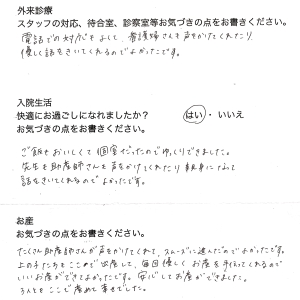 外来診療
スタッフの対応、待合室、診察室等お気づきの点をお書きください。
電話での対応もよくて、看護婦さんも声をかけてくれたり
優しく話をきいてくれるのでよかったです。
入院生活
快適にお過ごしになれましたか? はい ・ いいえ
お気づきの点をお書きください。
ご飯もおいしくて個室だったのでゆっくりできました。
先生も助産師さんも声をかけてくれたり親身になって
話をきいてくれるのでよかったです。
お産
お気づきの点をお書きください。
たくさん助産師さんが声をかけてくれて、スムーズに進んだのでよかったです。
上の子たちもここで出産して、毎回優しくお産を手伝ってくれるので
いいお産ができてよかったです。安心してお産ができました。
3人ともここで産めて幸せでした。